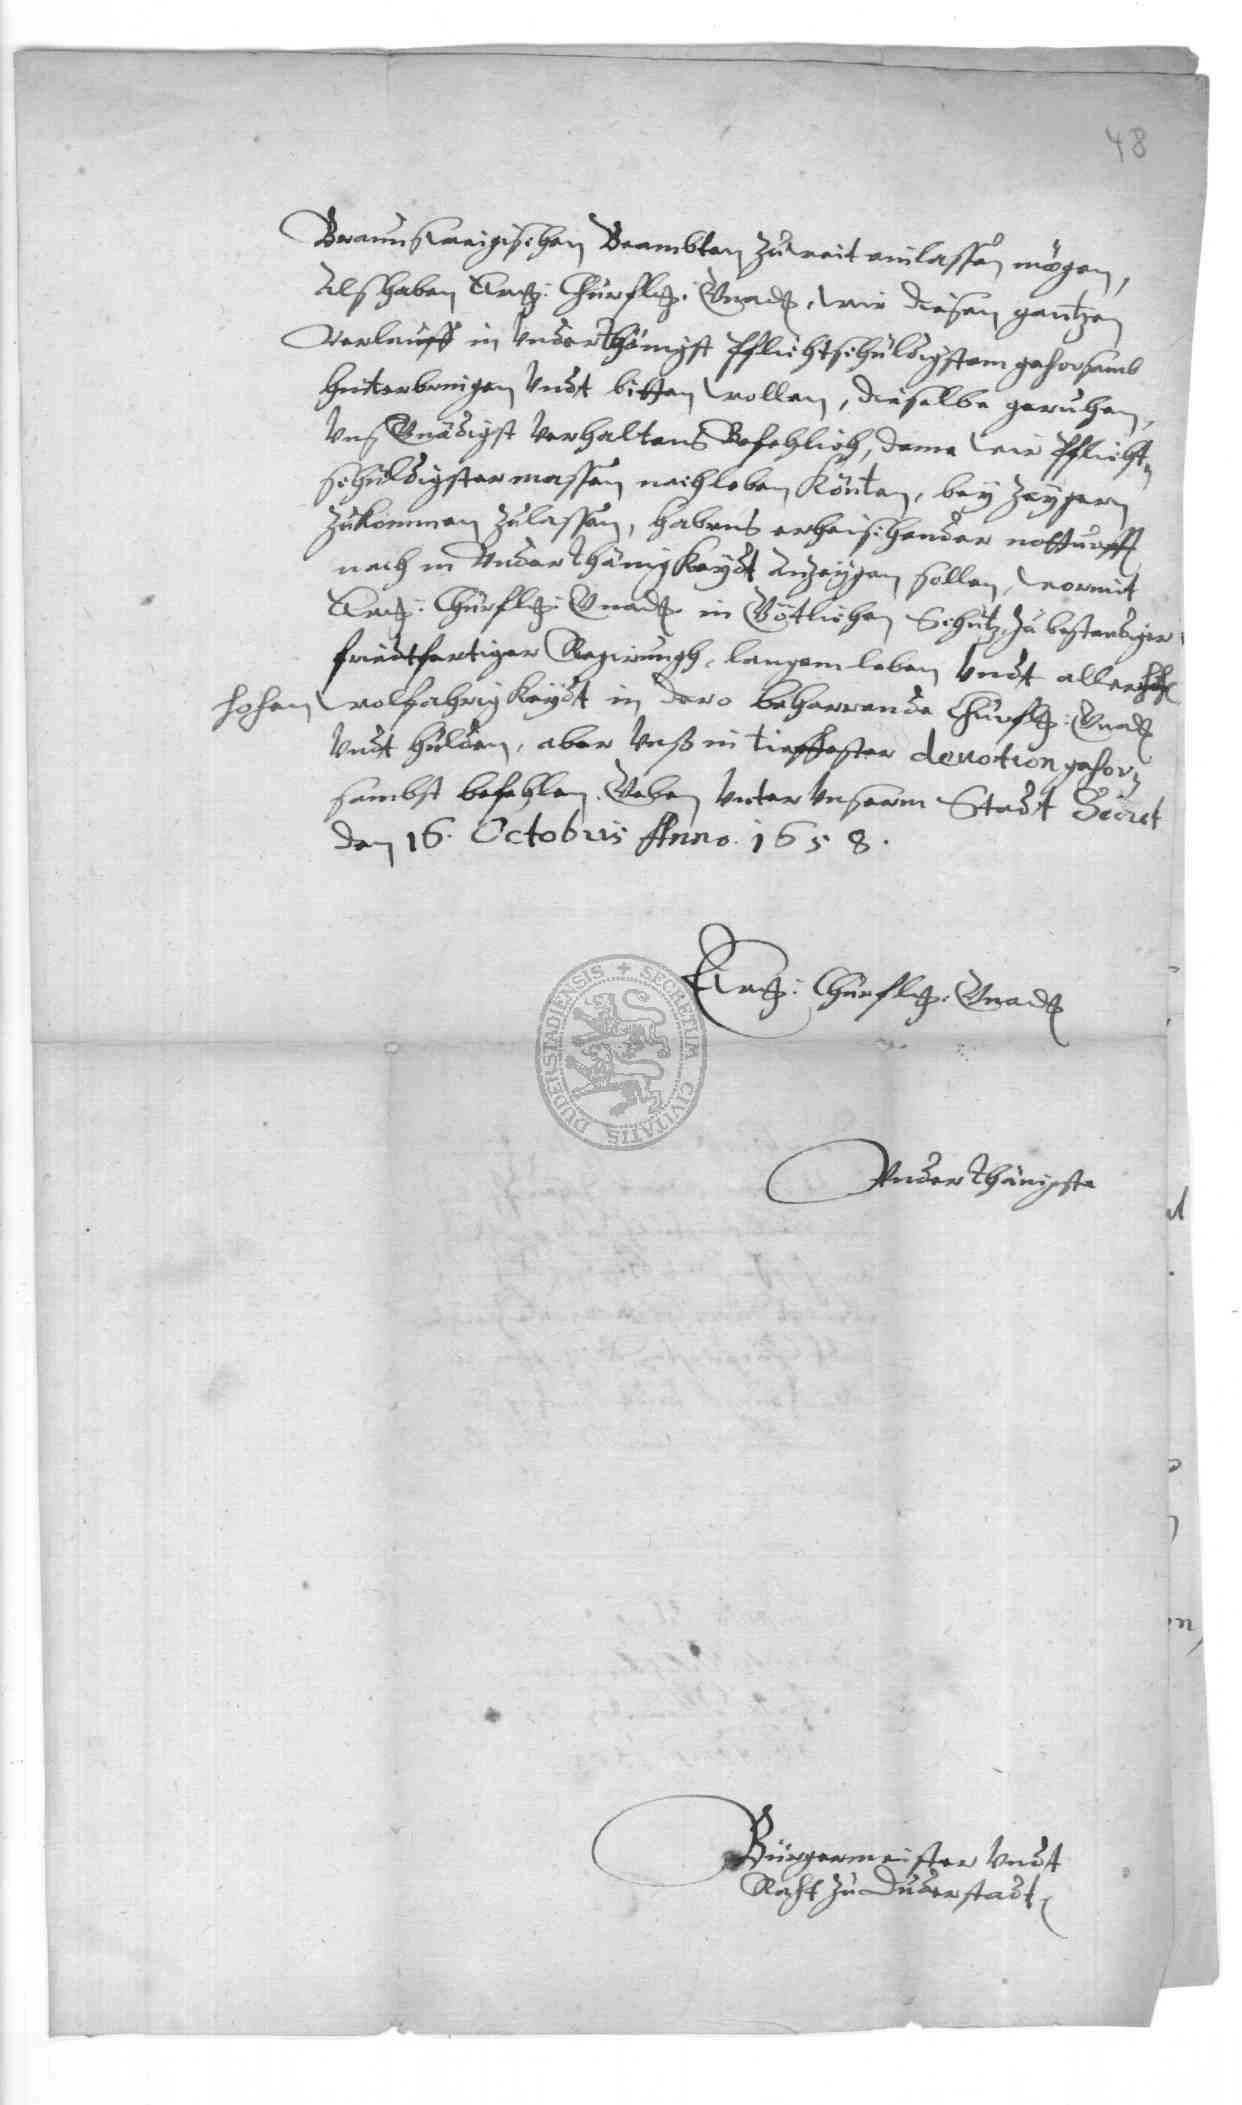 48
Braunschweigischen Beambten zuweit einlassen mögen,
Alß haben Ewrg: Churfl: Gnad: wir diesen gantzen
Verlauff in Underthönigst pflichtschuldigstem gehorsamb
hinterbringen Undt bitten wollen, dieselbe geruhen,
Unß Gnädigst Verhaltens Befehlich, deme wir pflicht
schuldigster massen nachleben könten, bey Zeygern
Zukommen Zulassen, habens erheischender notturfft
nach in Underthänigkeydt anzeygen sollen, wormit
Ewrg: Churfl: Gnad: in Götlichen Schutz, zu bestendiger
friedtfertiger Regirungh, langem leben Undt aller
hohen wolfahrigkeydt in dero beharrende Churfl: Gnad
Undt hulden, aber Unß in tieffester devotion gehor
sambst befehlen. Geben Unter Unserm Stadt Secret
den 16. Octobris Anno. 1658.
Ewrg: Churfl: Gnad
SECRETUM CIVITATIS DUDERSTADIENSIS
Underthänigste
Bürgermeister Undt
Raht zu Duderstadt